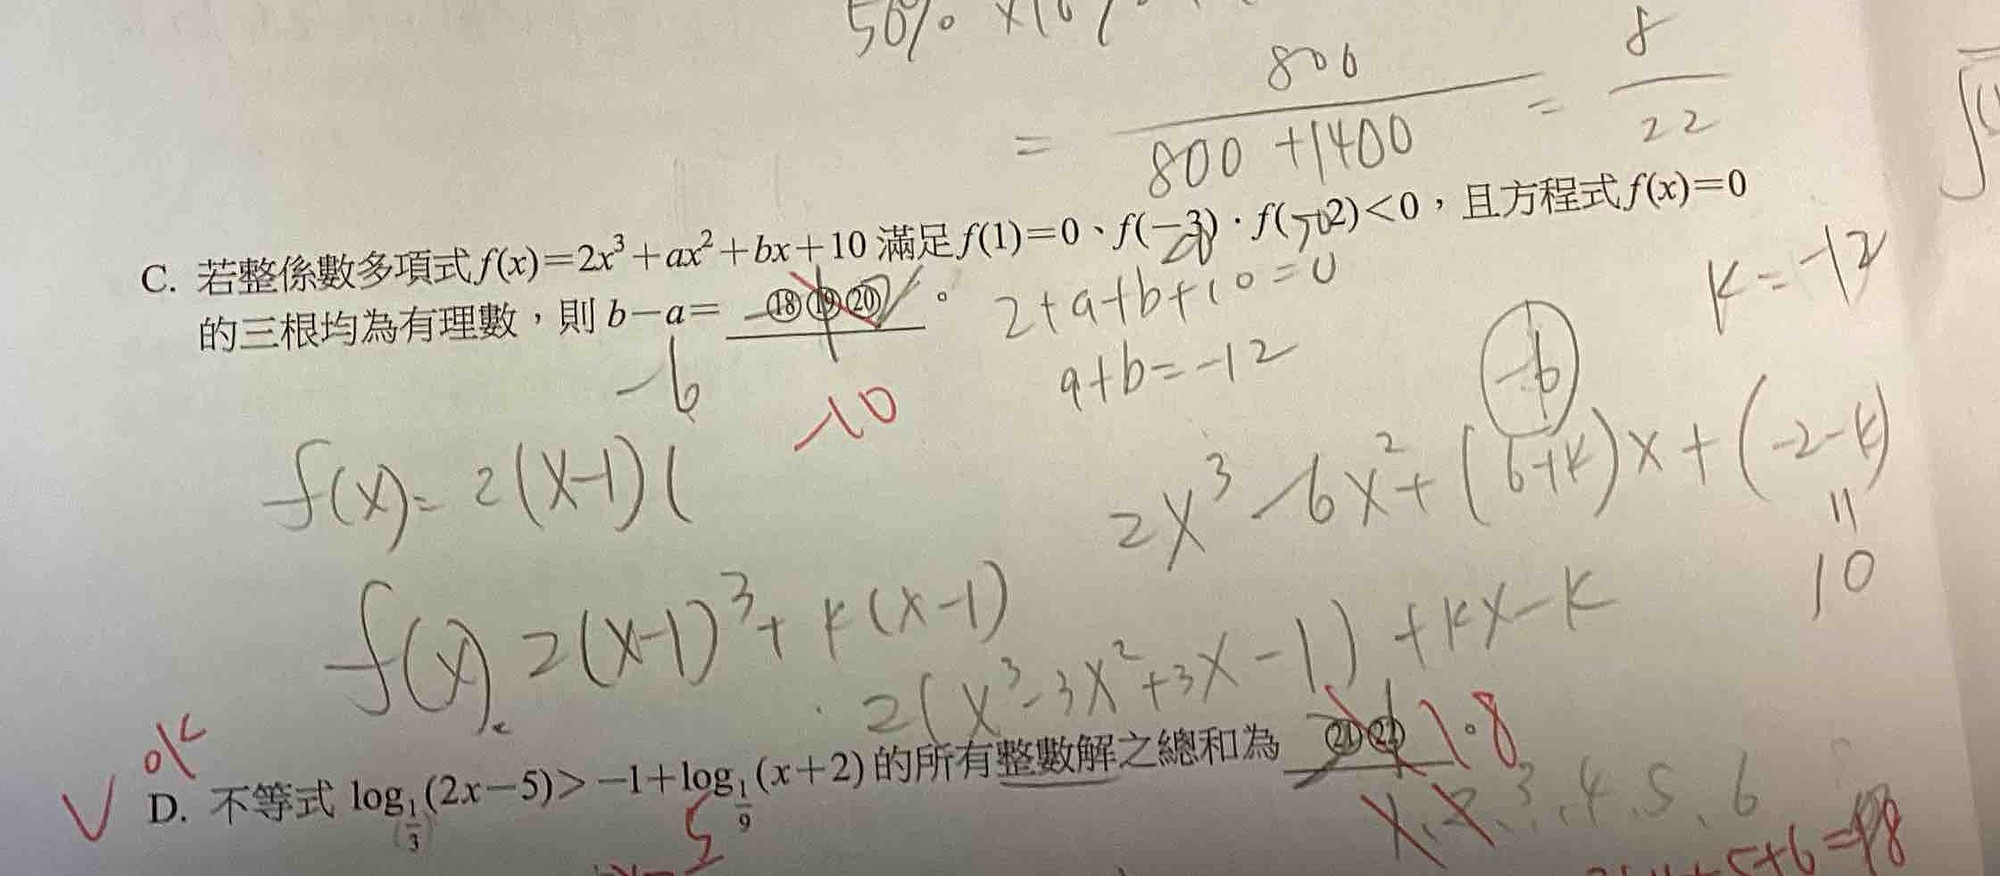 50%
= 800 / 800+1400 = 8 / 22
C. 若整係數多項式 f(x)=2x³+ax²+bx+10 滿足 f(1)=0、f(-3)·f(-2)<0，且方程式 f(x)=0
的三根均為有理數，則 b-a= ⑱⑲⑳。
2+a+b+10=0
k=-12
a+b=-12
-6
-10
-6
f(x)= 2(x-1)(
2x³-6x²+(6+k)x+(-2-k)
"
10
f(x)= 2(x-1)³+k(x-1)
2(x³-3x²+3x-1)+kx-k
ok
1.8
D. 不等式 log_{1/3}(2x-5)>-1+log_{1/9}(x+2) 的所有整數解之總和為 ㉑㉒
3、4、5、6
5+6=18